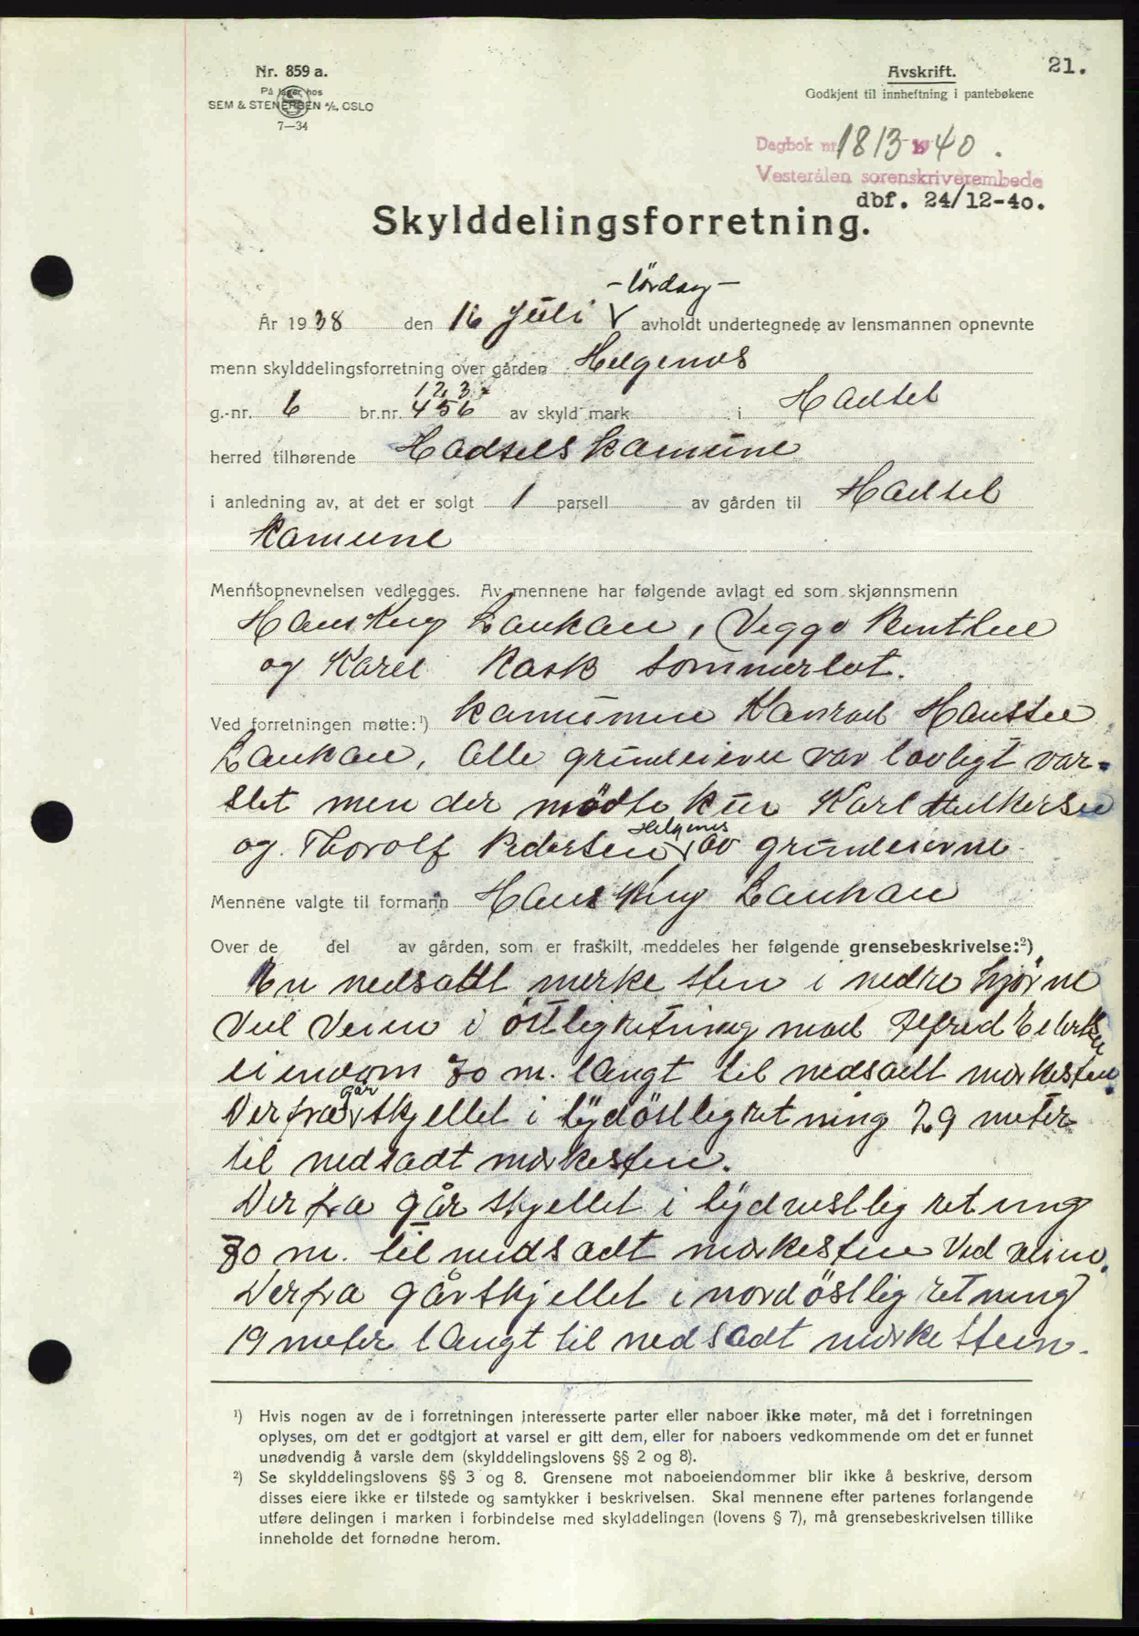 Nr. 859 a.
På lager hos
SEM & STENERSEN A/S, OSLO
7—34
Avskrift.
Godkjent til innheftning i pantebøkene
21.
Dagbok nr. 1813 - 1940.
Vesterålen sorenskriverembede
dbf. 24/12-40.
Skylddelingsforretning.
- lördag -
År 1938 den 16 Juli avholdt undertegnede av lensmannen opnevnte
menn skylddelingsforretning over gården Helgenes
1, 2, 3,
g.-nr. 6 br.nr. 4 5 6 av skyld mark i Hadsel
herred tilhørende Hadsels Kamune
i anledning av, at det er solgt 1 parsell av gården til Hadsel
Kamune
Mennsopnevnelsen vedlegges. Av mennene har følgende avlagt ed som skjønnsmenn
Hans Krog Laukan, Viggo Benthen
og Karel Rask Sommerset.
Ved forretningen møtte:¹) Konrad Hanssen
Laukan, Alle grundeiere var lovligt var=
slet men der mödte kun Karl
Helgenes
og Thorolf Pedersen av grundeierne
Mennene valgte til formann Hans Krog Laukan
Over de del av gården, som er fraskilt, meddeles her følgende grensebeskrivelse:²)
En nedsadt merke sten i nedre hjørne
Ved Veien i östlig retning mod Alfred
eiendom 30 m. langt til nedsadt merkesten.
går
Derfra skjellet i sydöstlig retning 29 meter
til nedsadt merkesten.
Derfra går skjellet i sydvestlig retning
30 m. til nedsadt merkesten Ved veien.
Derfra går skjellet i nordöstlig retning
19 meter langt til nedsadt merke steen.
¹) Hvis nogen av de i forretningen interesserte parter eller naboer ikke møter, må det i forretningen
oplyses, om det er godtgjort at varsel er gitt dem, eller for naboers vedkommende om det er funnet
unødvendig å varsle dem (skylddelingslovens §§ 2 og 8).
²) Se skylddelingslovens §§ 3 og 8. Grensene mot naboeiendommer blir ikke å beskrive, dersom
disses eiere ikke er tilstede og samtykker i beskrivelsen. Skal mennene efter partenes forlangende
utføre delingen i marken i forbindelse med skylddelingen (lovens § 7), må grensebeskrivelsen tillike
inneholde det fornødne herom.